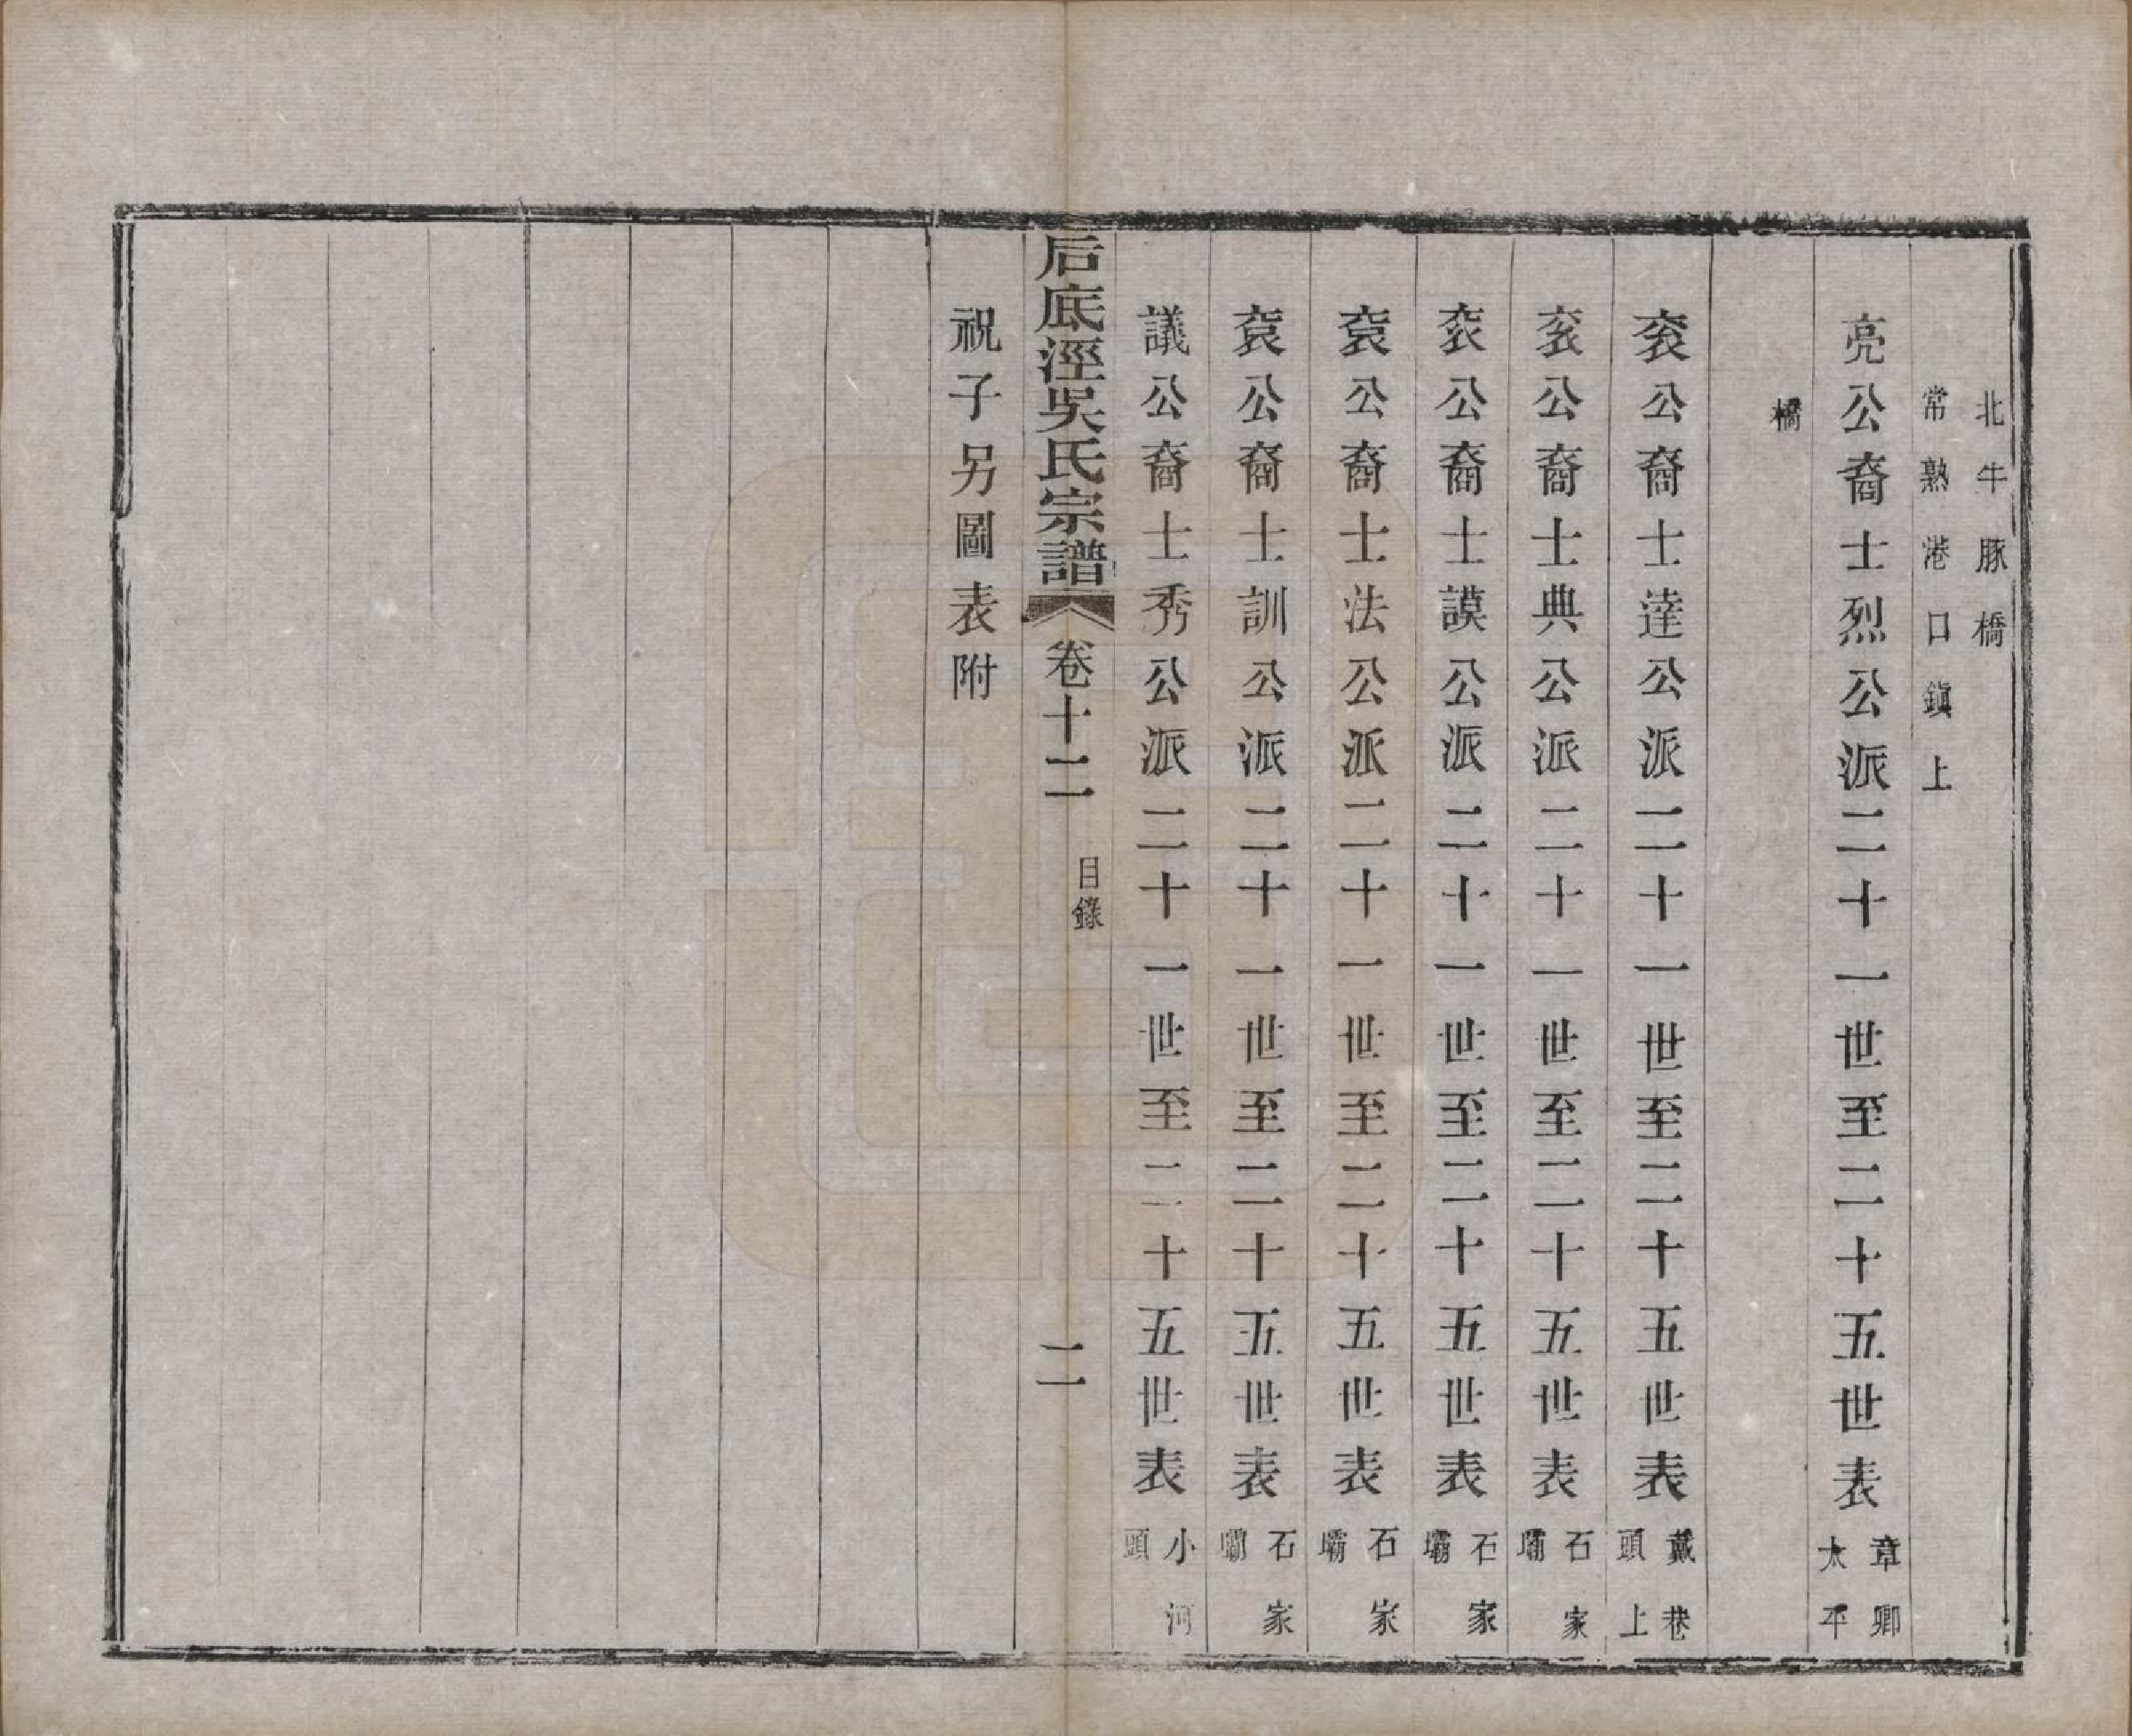 北牛豚橋
常熟港口鎮上
亮公裔士烈公派二十一世至二十五世表
章卿
太平
橋
衮公裔士達公派二十一世至二十五世表
戴巷
頭上
衮公裔士典公派二十一世至二十五世表
石家
壩
衮公裔士謨公派二十一世至二十五世表
石家
壩
袞公裔士法公派二十一世至二十五世表
石家
壩
袞公裔士訓公派二十一世至二十五世表
石家
壩
議公裔士秀公派二十一世至二十五世表
小河
頭
后底涇吳氏宗譜
卷十二
目錄
二
祝子另圖表附